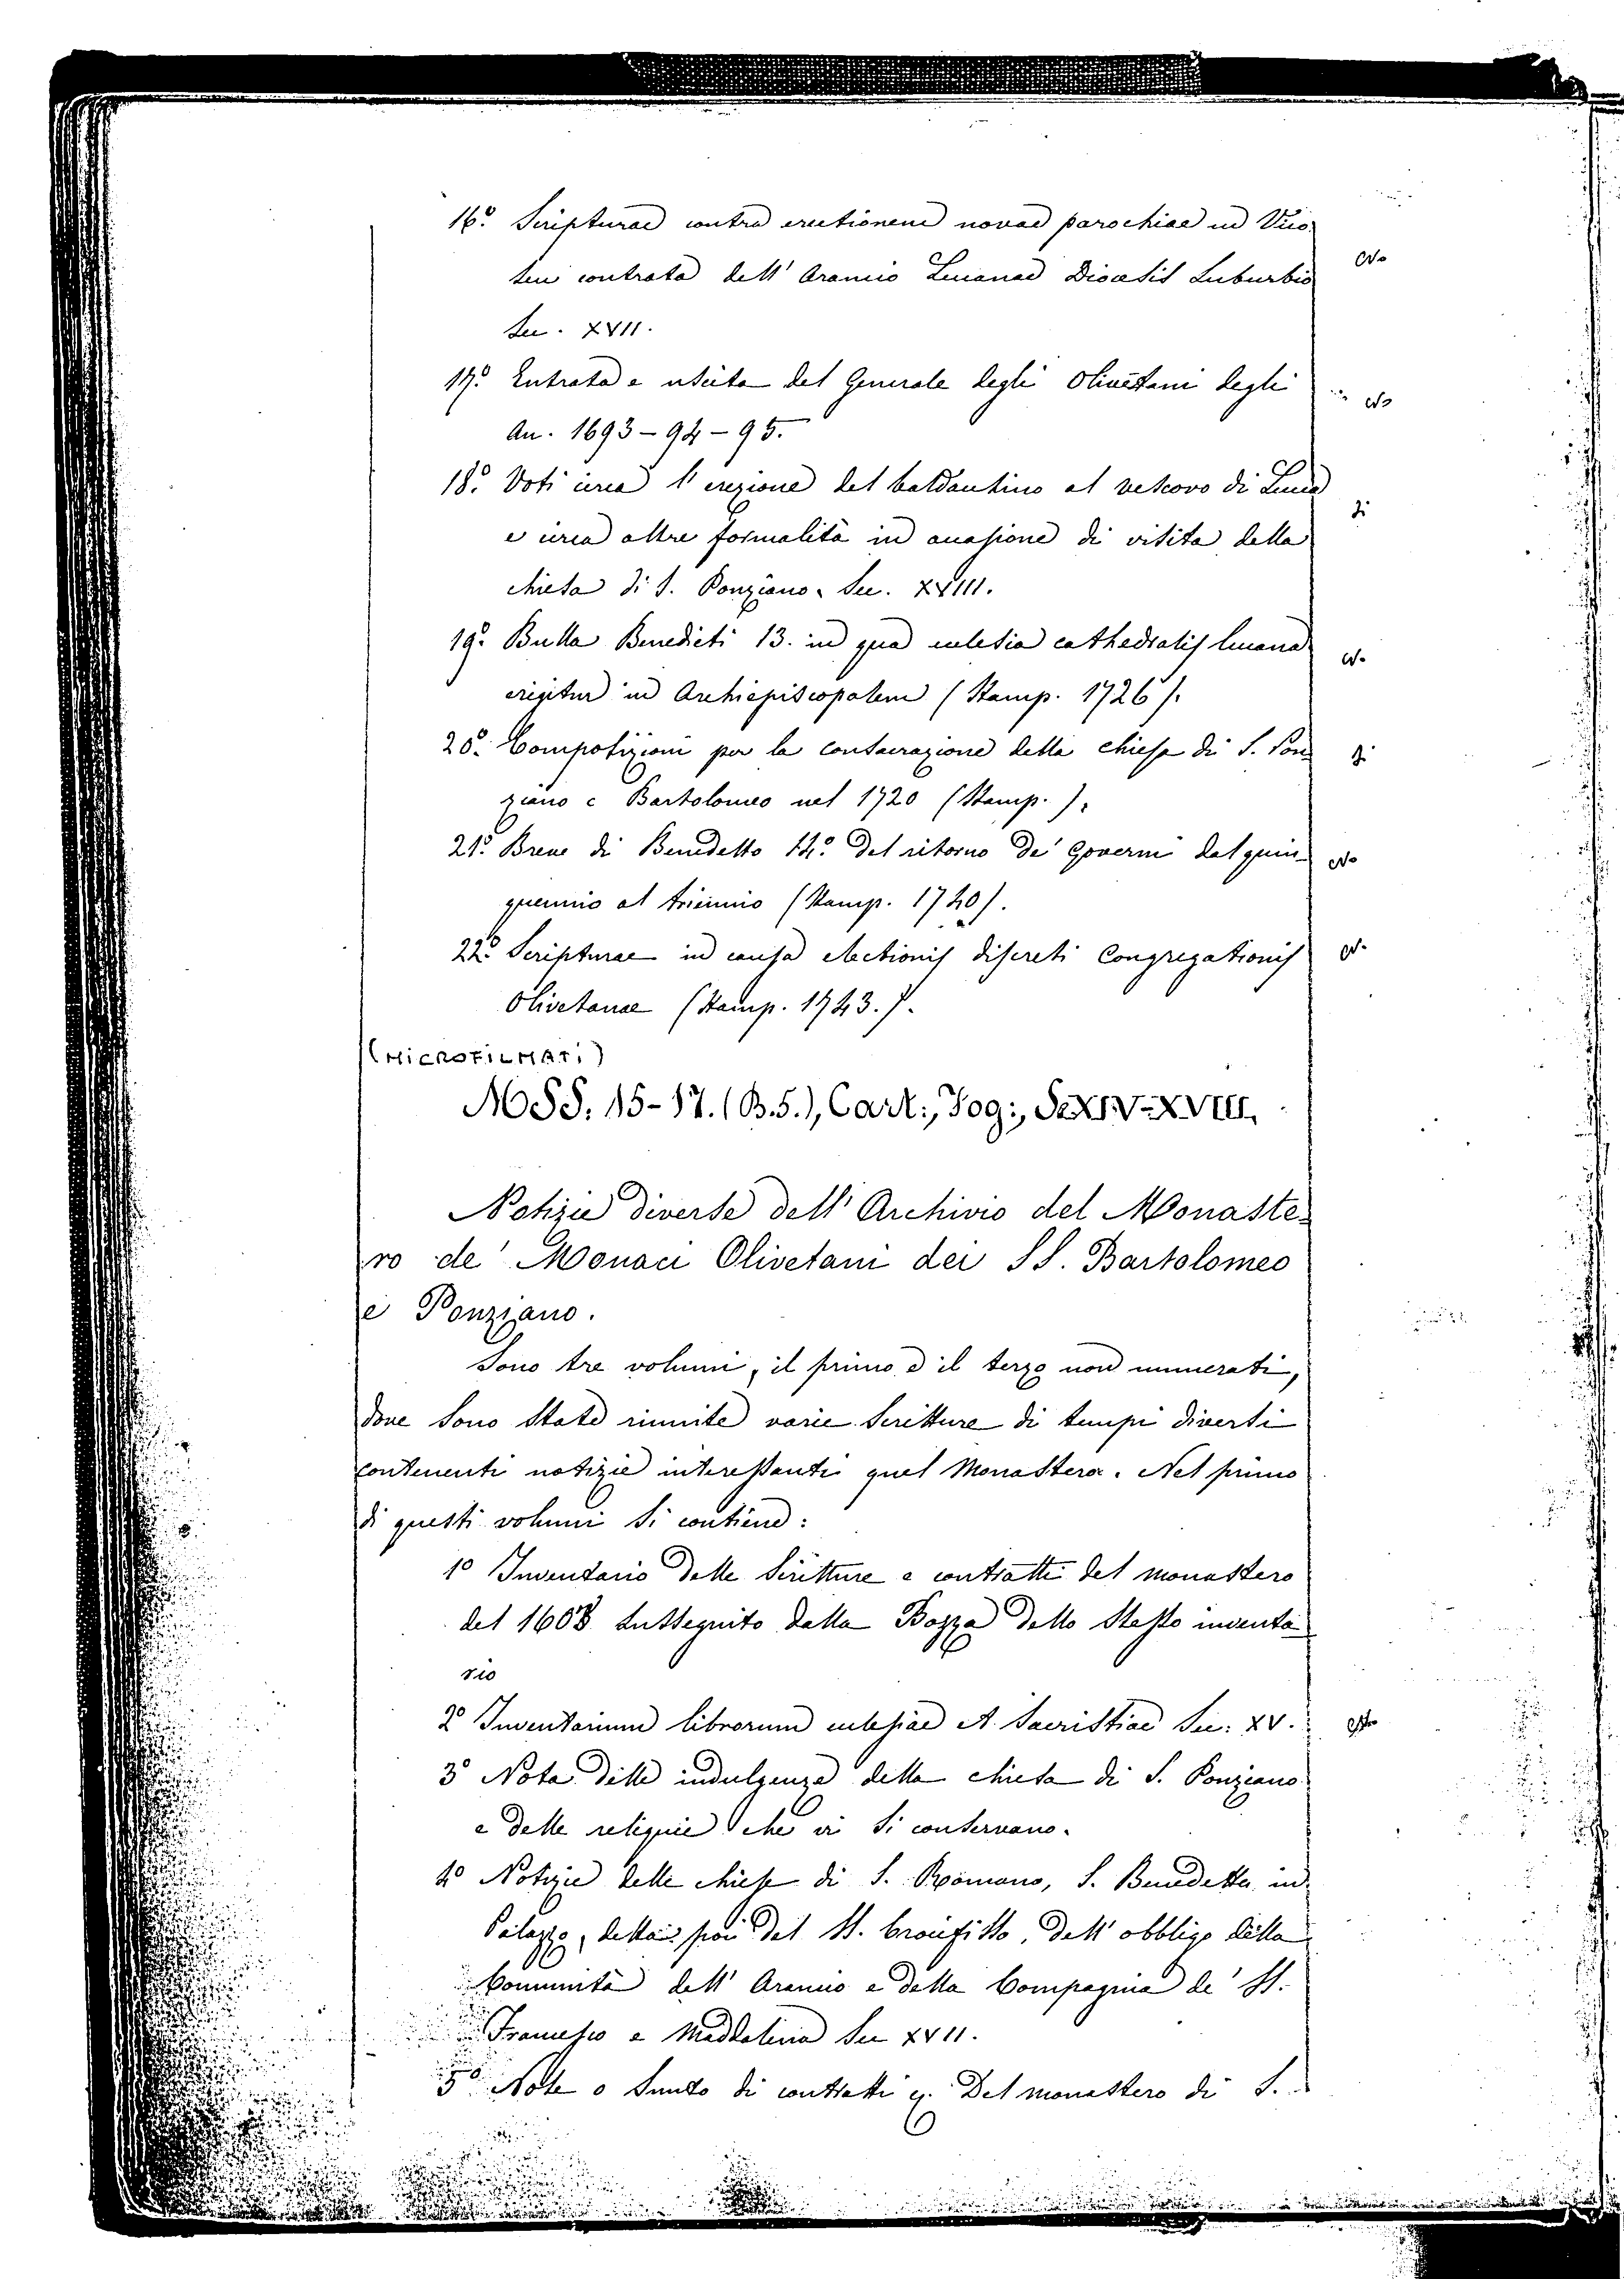 16.º Scripturae contra erectionem novae parochiae in Vico
seu contrata dell' Arancio Lucanae Diocesis Suburbio
Sec. XVII.
17.º Entrata e uscita del Generale degli Olivetani degli
An. 1693-94-95.
18.º Voti circa l'erezione del baldacchino al vescovo di Lucca
e circa altre formalità in occasione di visita della
chiesa di S. Ponziano. Sec. XVIII.
19.º Bulla Benedicti 13. in qua ecclesia cathedralis lucana
erigitur in Archiepiscopalem (Stamp. 1726).
20.º Composizioni per la consacrazione della chiesa di S. Pon-
ziano e Bartolomeo nel 1720 (Stamp.).
21.º Breve di Benedetto 14.º del ritorno de' Governi dal quin-
quennio al triennio (Stamp. 1740).
22.º Scripturae in causa electionis discreti Congregationis
Olivetanae (Stamp. 1743.).
(MICROFILMATI)
MSS. 15-17. (B.5.), Cart:, Fog:, Sec XIV-XVIII.
Notizie diverse dell' Archivio del Monaste-
ro de' Monaci Olivetani dei SS. Bartolomeo
e Ponziano.
Sono tre volumi, il primo e il terzo non numerati,
dove sono state riunite varie scritture di tempi diversi
contenenti notizie interessanti quel Monastero. Nel primo
di questi volumi si contiene:
1º Inventario delle scritture e contratti del monastero
del 1608 susseguito dalla Bozza dello stesso inventa
rio
2º Inventarium librorum ecclesiae et sacristiae Sec: XV.
3º Nota delle indulgenze della chiesa di S. Ponziano
e delle reliquie che vi si conservano.
4º Notizie delle chiese di S. Romano, S. Benedetto in
Palazzo, del SS. Crocifisso, dell' obbligo della
Comunità dell' Arancio e della Compagnia de' SS.
Francesco e Maddalena Sec XVII.
5º Note o Sunto di contratti Del monastero di S.